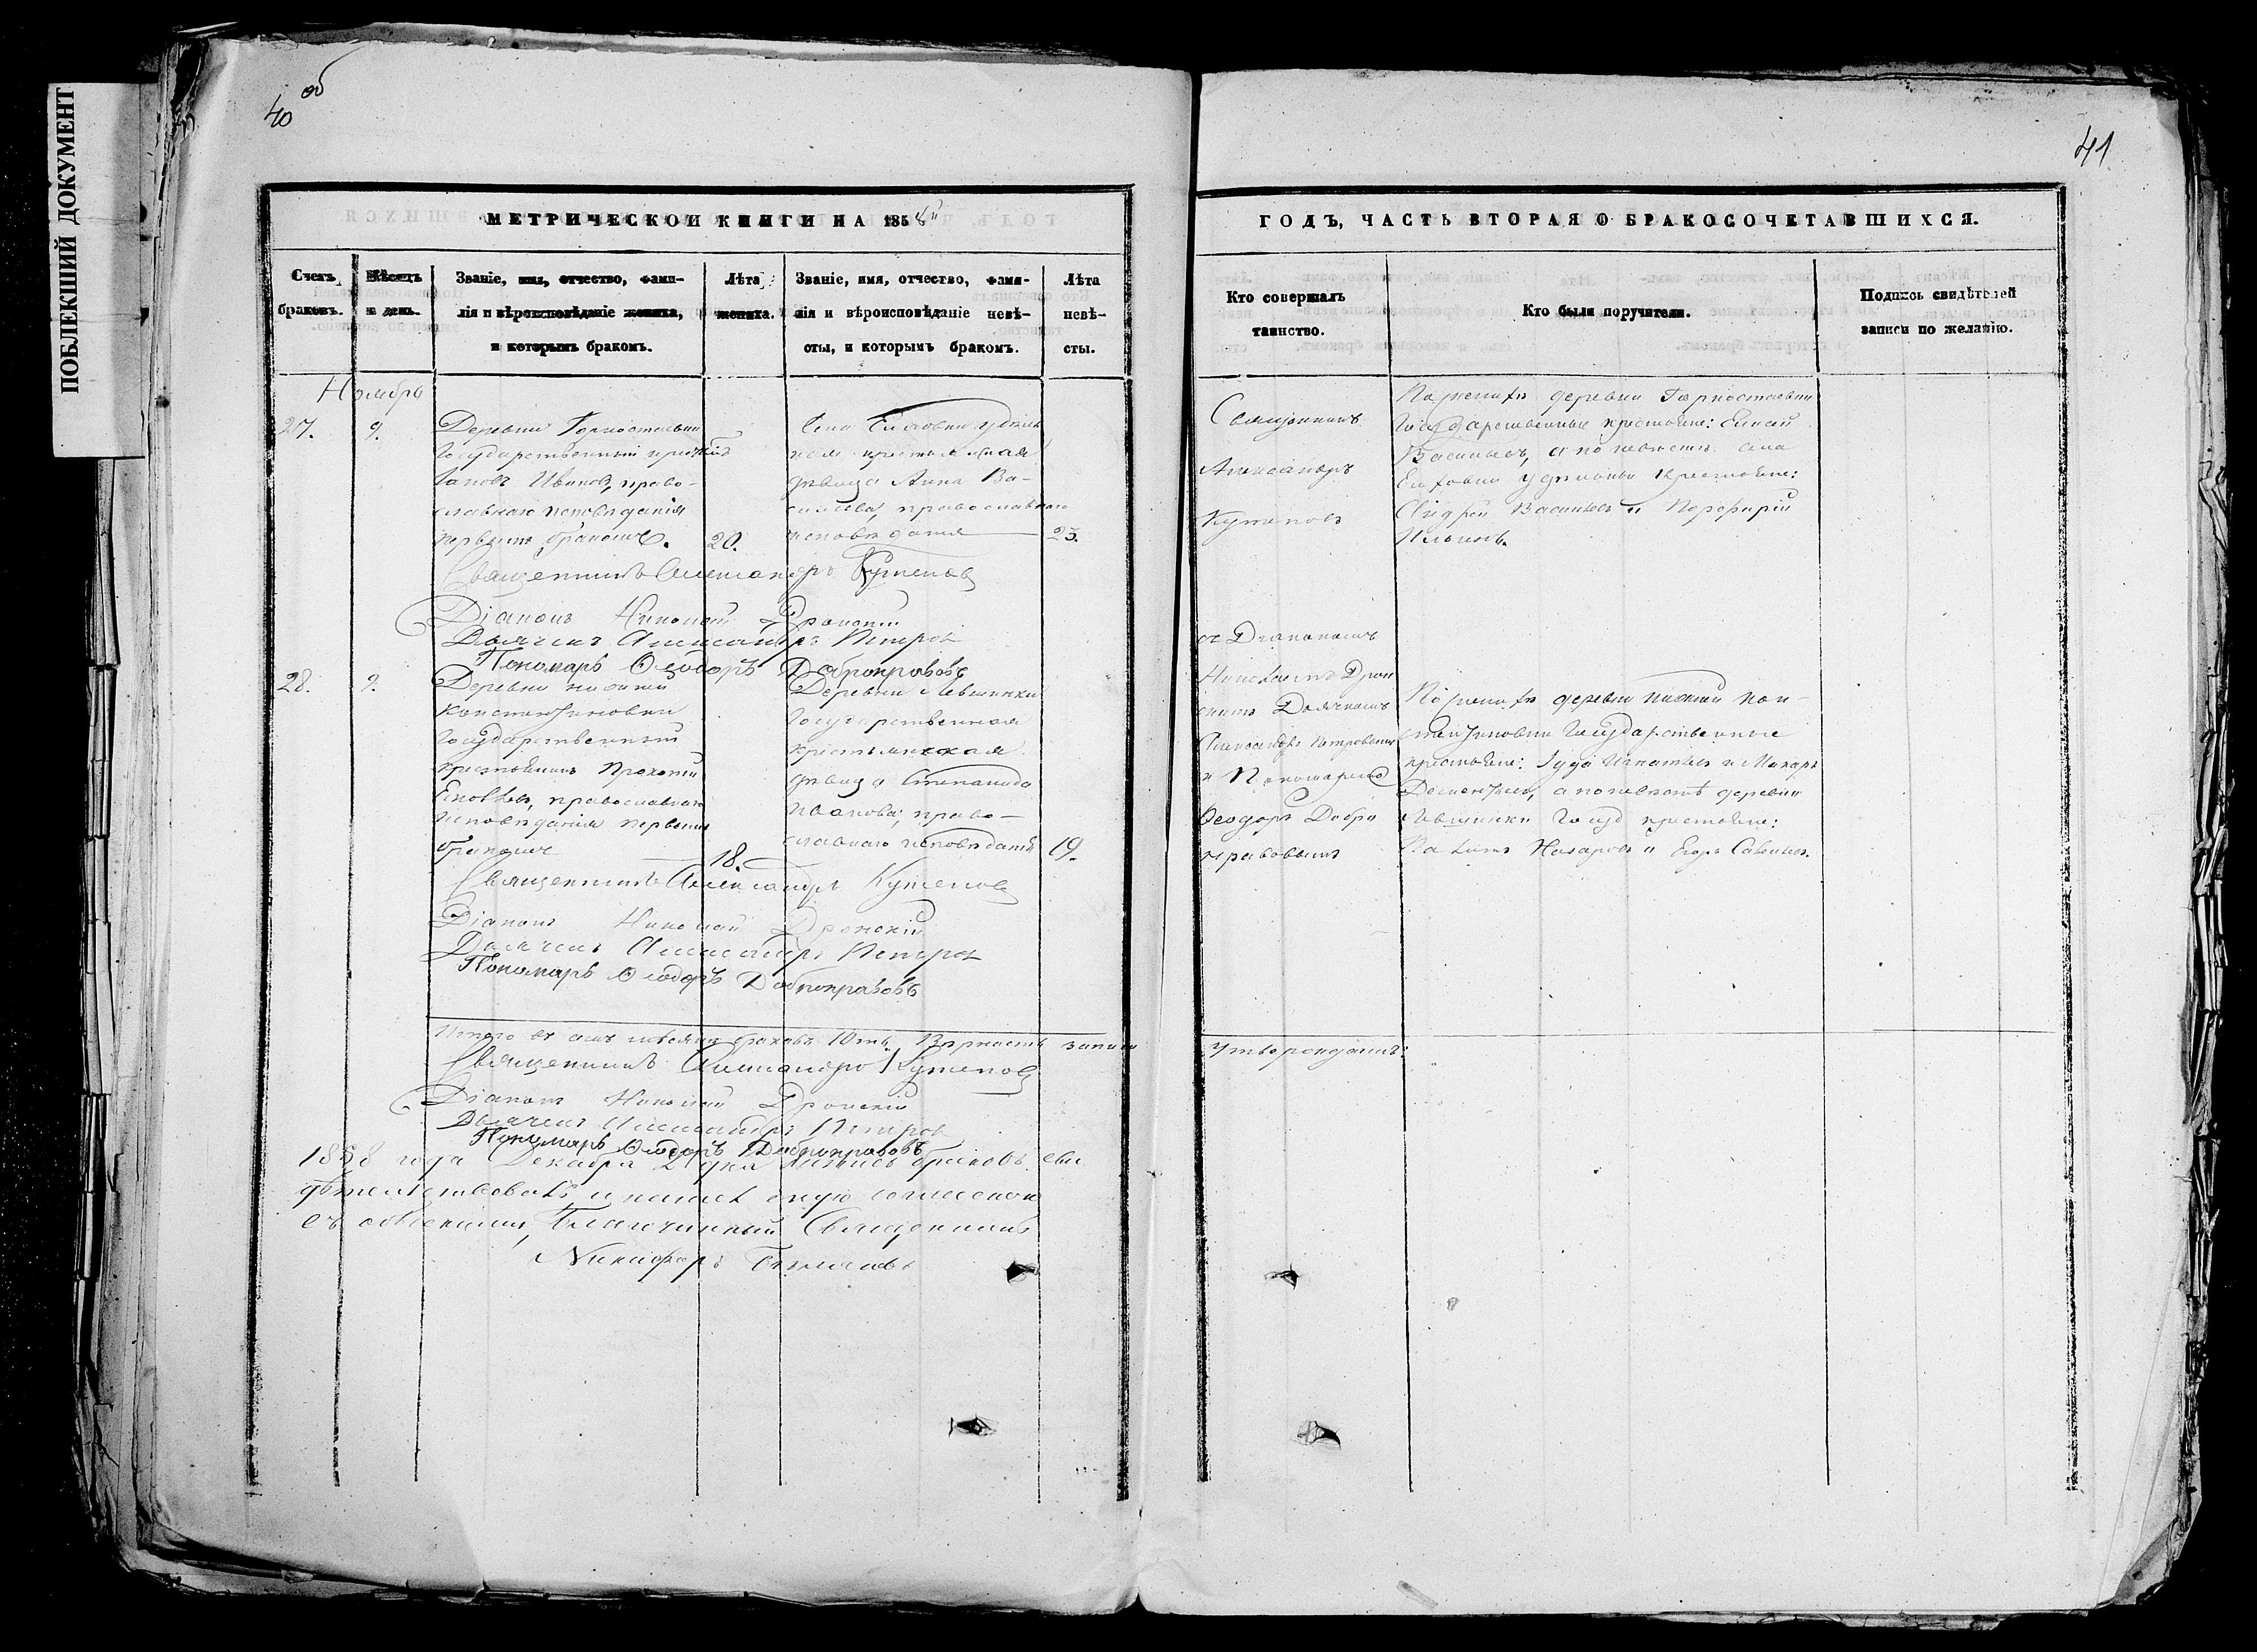 ПОБЛЕКШИЙ ДОКУМЕНТ
40 об
41
МЕТРИЧЕСКОЙ КНИГИ НА 1858й
ГОДЪ, ЧАСТЬ ВТОРАЯ О БРАКОСОЧЕТАВШИХСЯ.
Счетъ браковъ.
Мѣсяцъ и день.
Званіе, имя, отчество, фами-
лія и вѣроисповѣданіе жениха,
и которымъ бракомъ.
Лѣта жениха.
Званіе, имя, отчество, фами-
лія и вѣроисповѣданіе невѣ-
сты, и которымъ бракомъ.
Лѣта невѣ-
сты.
Кто совершалъ
таинство.
Кто были поручители.
Подпись свидѣтелей
записи по желанію.
Ноябрь
27.
9.
Деревни Горностаевки
Государственный
Иванов, право-
славнаго исповѣданія
первымъ бракомъ.
20.
Села
дѣвица Анна Ва-
сильева, православнаго
исповѣданія
23.
Священникъ
Александръ
Кутеповъ
По женихѣ деревни Горностаевки
Государственные крестьяне:
Васильевъ, а по невѣстѣ села
удѣльные крестьяне:
Андрей Васильевъ и Порфирій
Ильинъ.
Священникъ Александръ Кутеповъ
Діаконъ Николай Дронскій
Дьячекъ Александръ Петров
Пономарь Ѳеодоръ Добронравовъ
28.
9.
Деревни нижней
Константиновки
Государственный
крестьянинъ Прокопій
православнаго
исповѣданія первымъ
бракомъ
18.
Деревни Левшинки
Государственная
крестьянская
дѣвица Степанида
Иванова, право-
славнаго исповѣданія
19.
съ Діакономъ
Николаемъ Дрон
скимъ Дьячкомъ
Александр. Петровымъ
и Пономаремъ
Ѳеодор. Добро
нравовымъ
По женихѣ деревни нижней Кон-
стантиновки Государственные
крестьяне: Іуда Игнатьевъ и Макаръ
а по невѣстѣ деревни
Левшинки Госуд крестьяне:
Назаровъ и Егоръ Савельевъ.
Священникъ Александръ Кутеповъ
Діаконъ Николай Дронскій
Дьячекъ Александръ Петров
Пономарь Ѳеодоръ Добронравовъ
Итого въ семъ мѣсяцѣ браковъ 10ть. Вѣрность записи
утверждаемъ:
Священникъ Александръ Кутеповъ
Діаконъ Николай Дронскій
Дьячекъ Александръ Петров
Пономарь Ѳеодоръ Добронравовъ
1858 года Декабря 2 дня запись браковъ сви
дѣтельствовалъ и нашелъ оную согласною
съ обысками, Благочинный Священникъ
Никифоръ